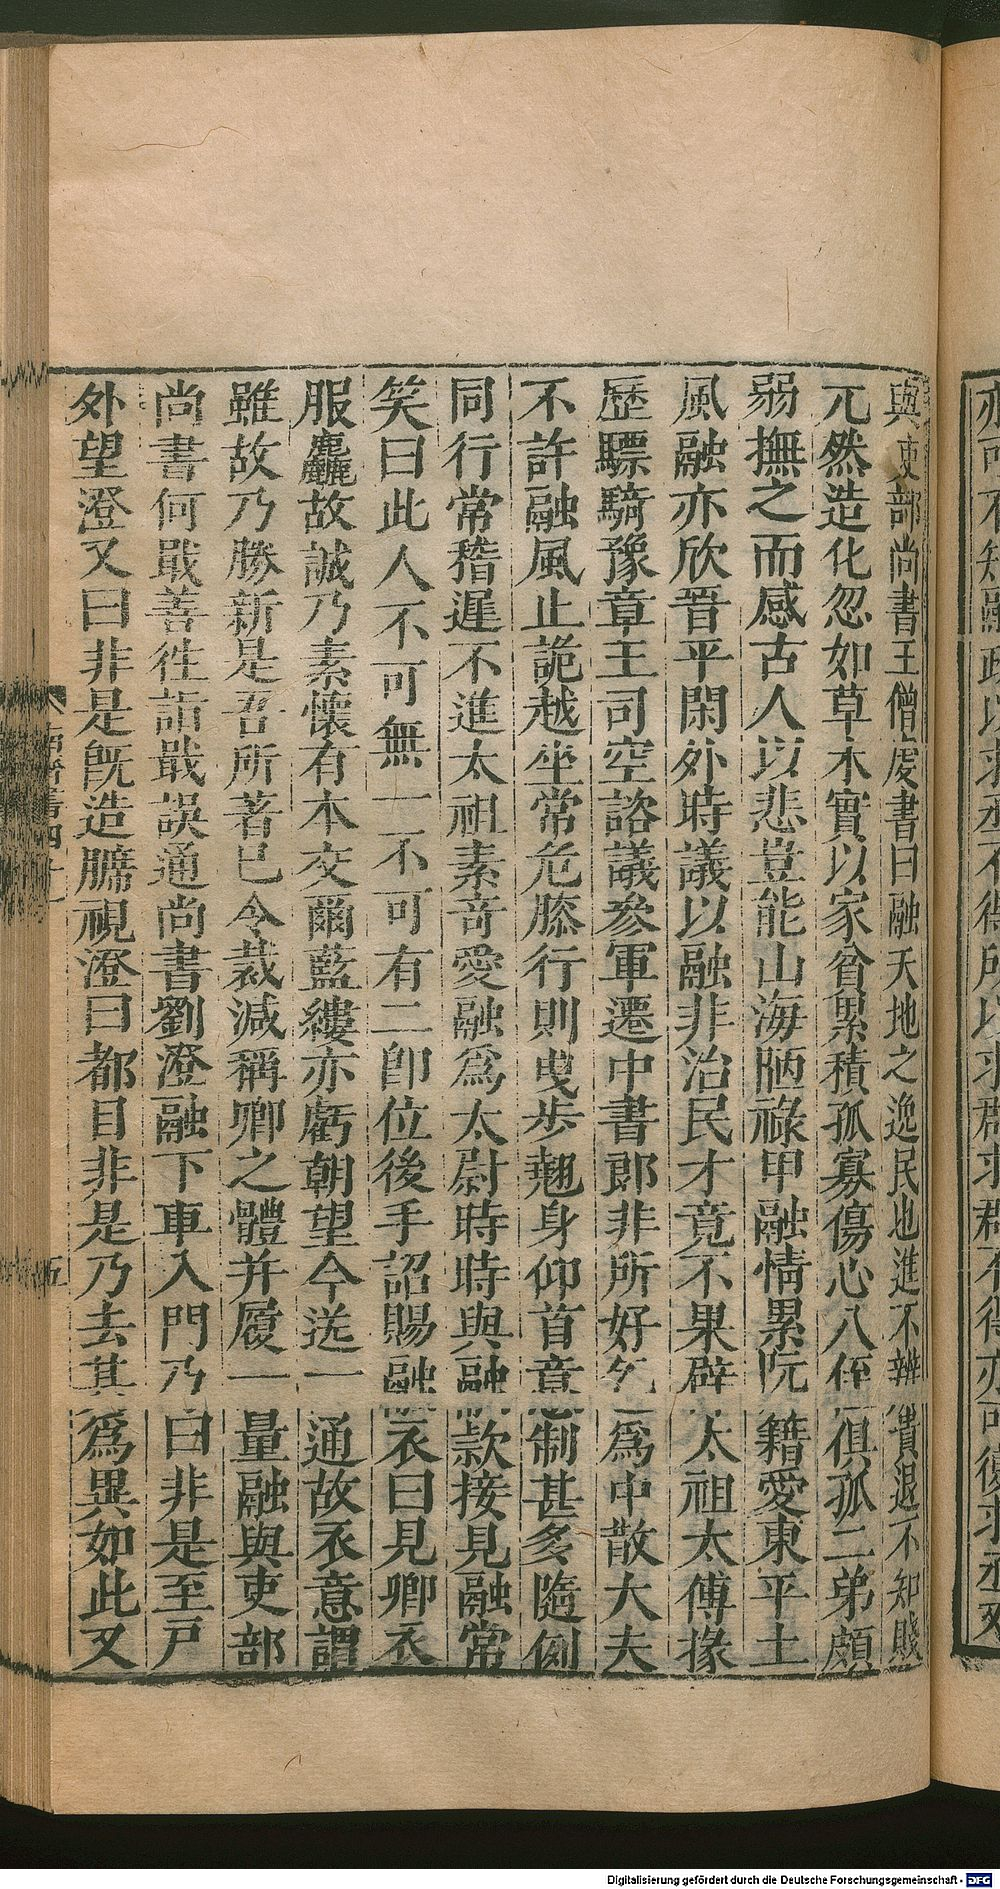 與吏部尚書王僧虔書曰融天地之逸民也進不辨貴退不知賤
兀然造化忽如草木實以家貧累積孤寡傷心八侄俱孤二弟頗
弱撫之而感古人以悲豈能山海陋祿申融情累阮籍愛東平土
風融亦欣晉平閑外時議以融非治民才竟不果辟太祖太傅掾
歷驃騎豫章王司空諮議參軍遷中書郎非所好乞爲中散大夫
不許融風止詭越坐常危膝行則曳步翹身仰首意制甚多隨例
同行常稽遲不進太祖素奇愛融爲太尉時時與融款接見融常
笑曰此人不可無一不可有二卽位後手詔賜融衣曰見卿衣
服麤故誠乃素懷有本交爾藍縷亦虧朝望今送一通故衣意謂
雖故乃勝新是吾所著已令裁減稱卿之體并履一量融與吏部
尚書何戢善往詣戢誤通尚書劉澄融下車入門乃曰非是至戶
外望澄又曰非是旣造牖視澄曰都自非是乃去其爲異如此又
五
Digitalisierung gefördert durch die Deutsche Forschungsgemeinschaft - DFG